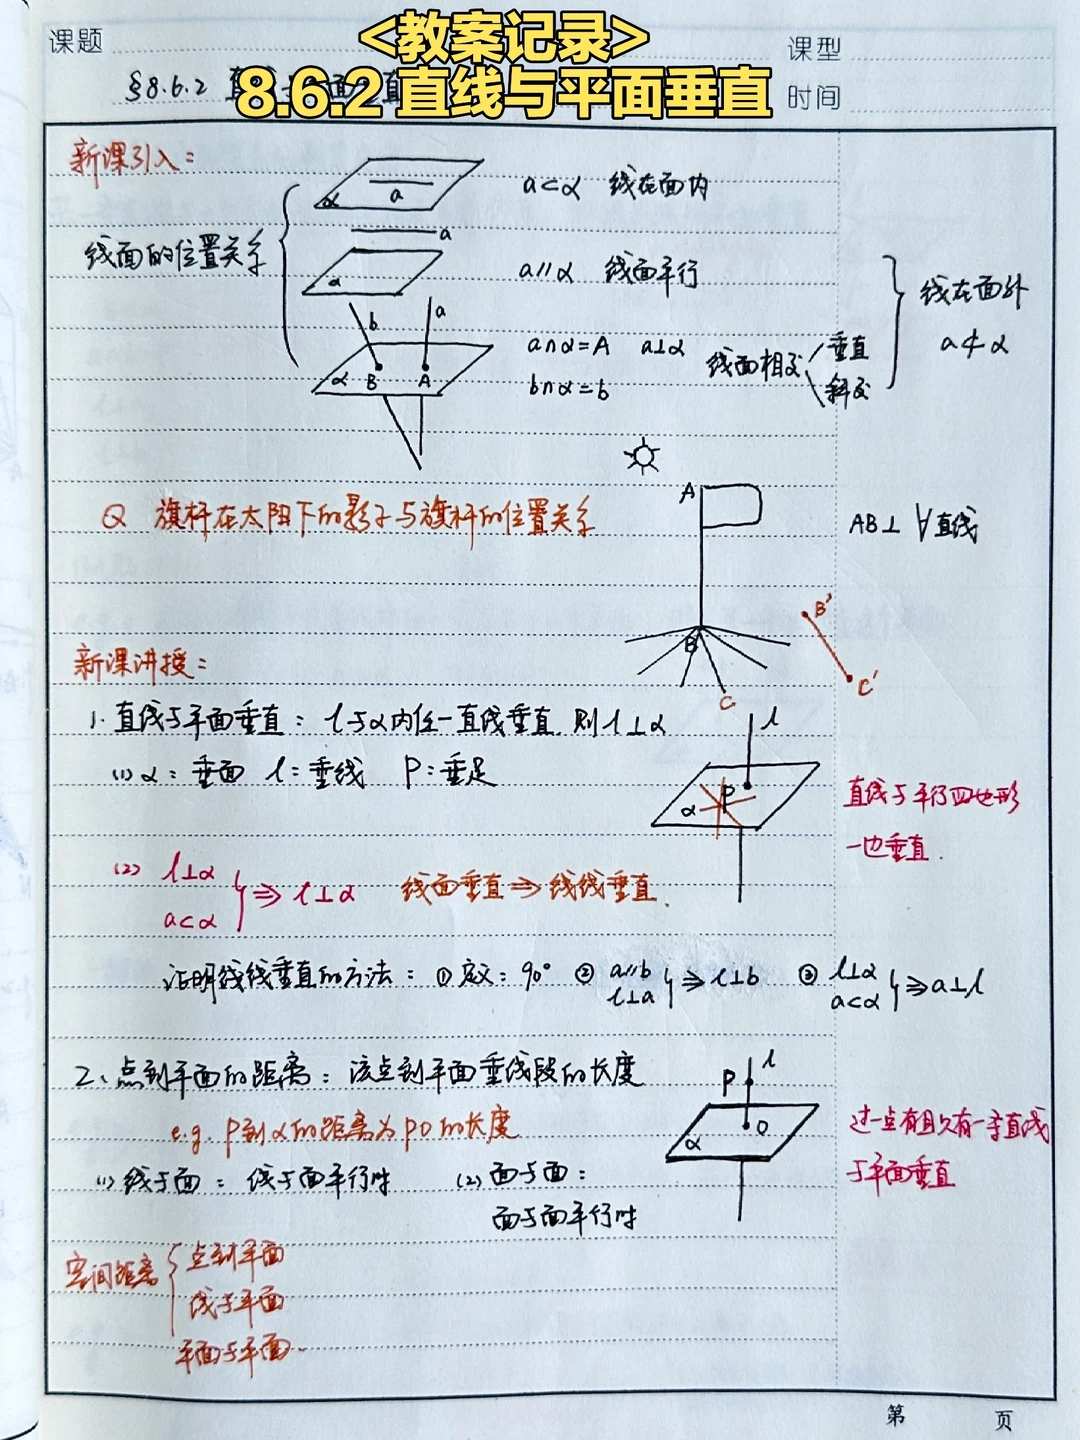 <教案记录>
课题
课型
§8.6.2
8.6.2直线与平面垂直
时间
新课引入：
α a
a⊂α 线在面内
线面的位置关系
a
α
a∥α 线面平行
线在面外
a⊄α
b a
α B A
a∩α=A a⊥α
b∩α=b
线面相交
垂直
斜交
Q 旗杆在太阳下的影子与旗杆的位置关系
A
B
C
AB⊥∀直线
B'
C'
新课讲授：
1. 直线与平面垂直：l与α内任一直线垂直，则l⊥α
(1) α：垂面 l：垂线 P：垂足
l
P
α
直线与平行四边形
一边垂直.
(2) l⊥α
a⊂α
⇒ l⊥α 线面垂直⇒线线垂直.
证明线线垂直的方法：① 定义：90° ② a∥b
l⊥a
⇒l⊥b ③ l⊥α
a⊂α
⇒a⊥l
2、点到平面的距离：该点到平面垂线段的长度
e.g. P到α的距离为PO的长度
l
P
O
α
过一点有且只有一条直线
与平面垂直
(1) 线与面：线与面平行时 (2) 面与面：
面与面平行时
空间距离
点到平面
线与平面
平面与平面.
第 页